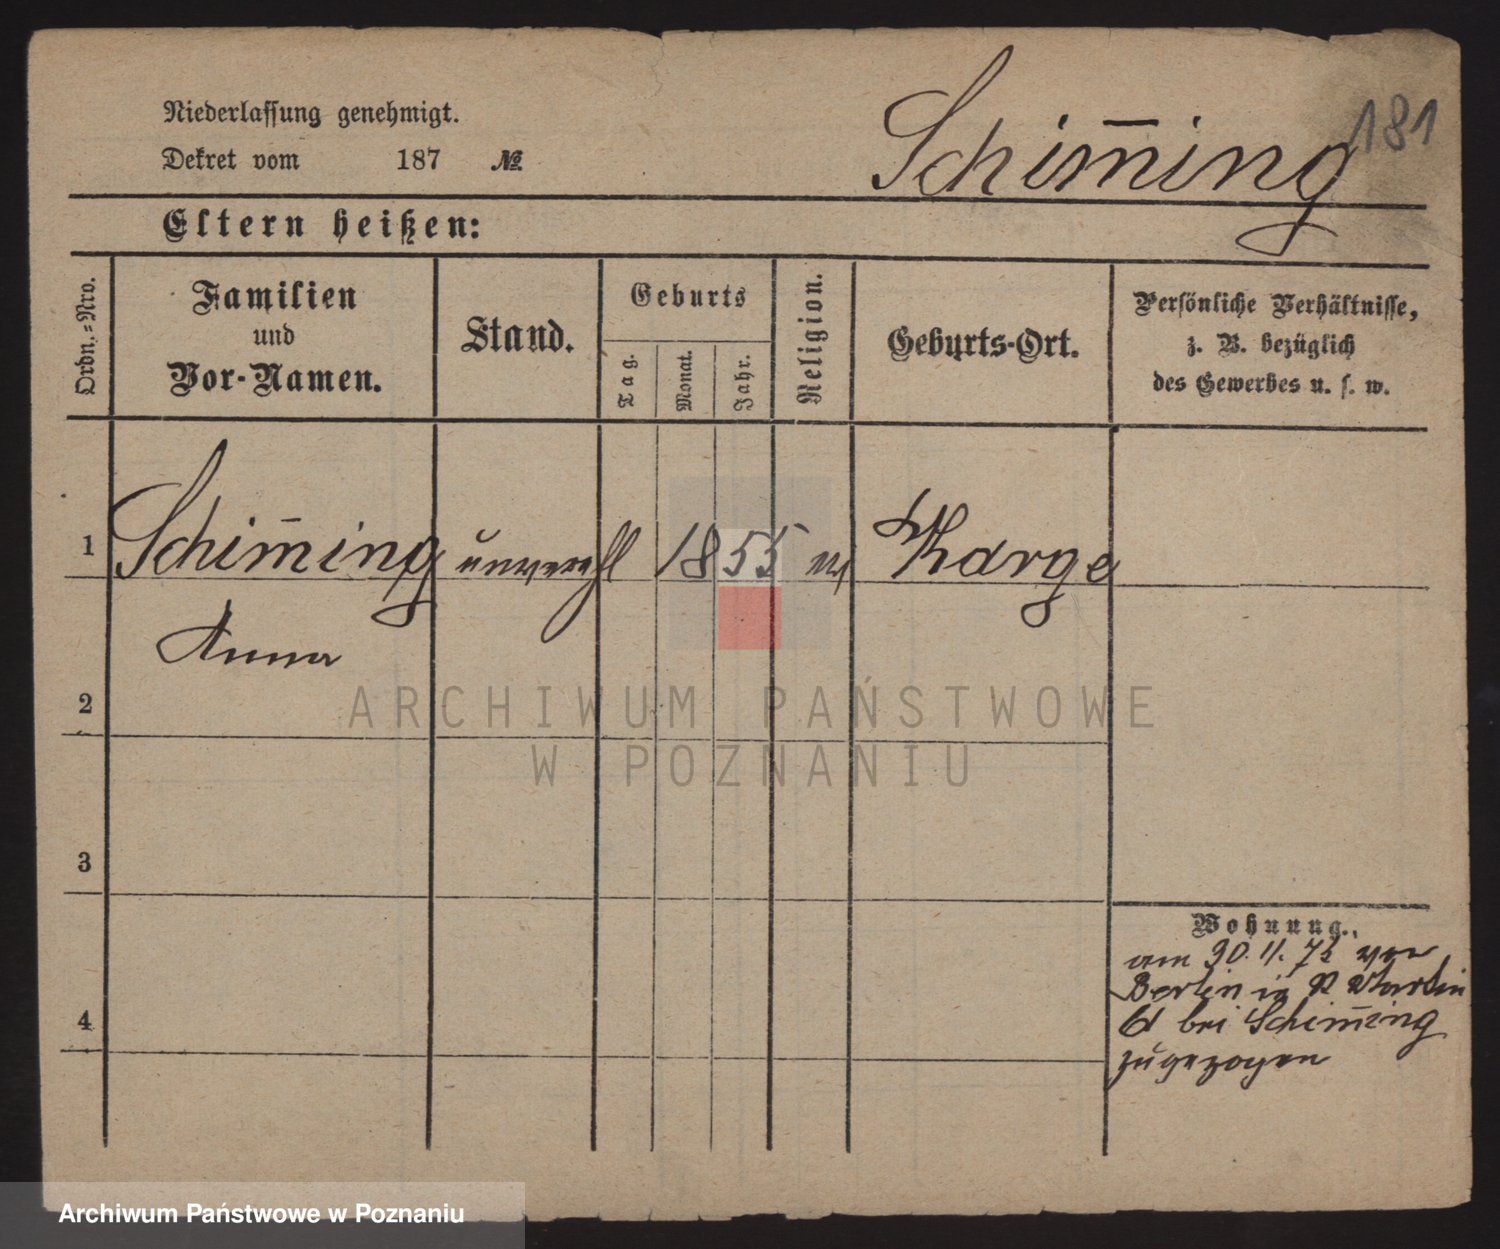 181
Schim̄ing
Niederlassung genehmigt.
Dekret vom 187 №
Eltern heißen:
Ordn.=Nro.
Familien
und
Vor-Namen.
Stand.
Geburts
Tag.
Monat.
Jahr.
Religion.
Geburts-Ort.
Persönliche Verhältnisse,
z. B. bezüglich
des Gewerbes u. s. w.
1 Schim̄ing unverehl 1855 Karge
Anna
2
3
4
Wohnung.
am 30. 11. von
Berlin in St Martin
bei Schim̄ing
zugezogen
ARCHIWUM PAŃSTWOWE
W POZNANIU
Archiwum Państwowe w Poznaniu